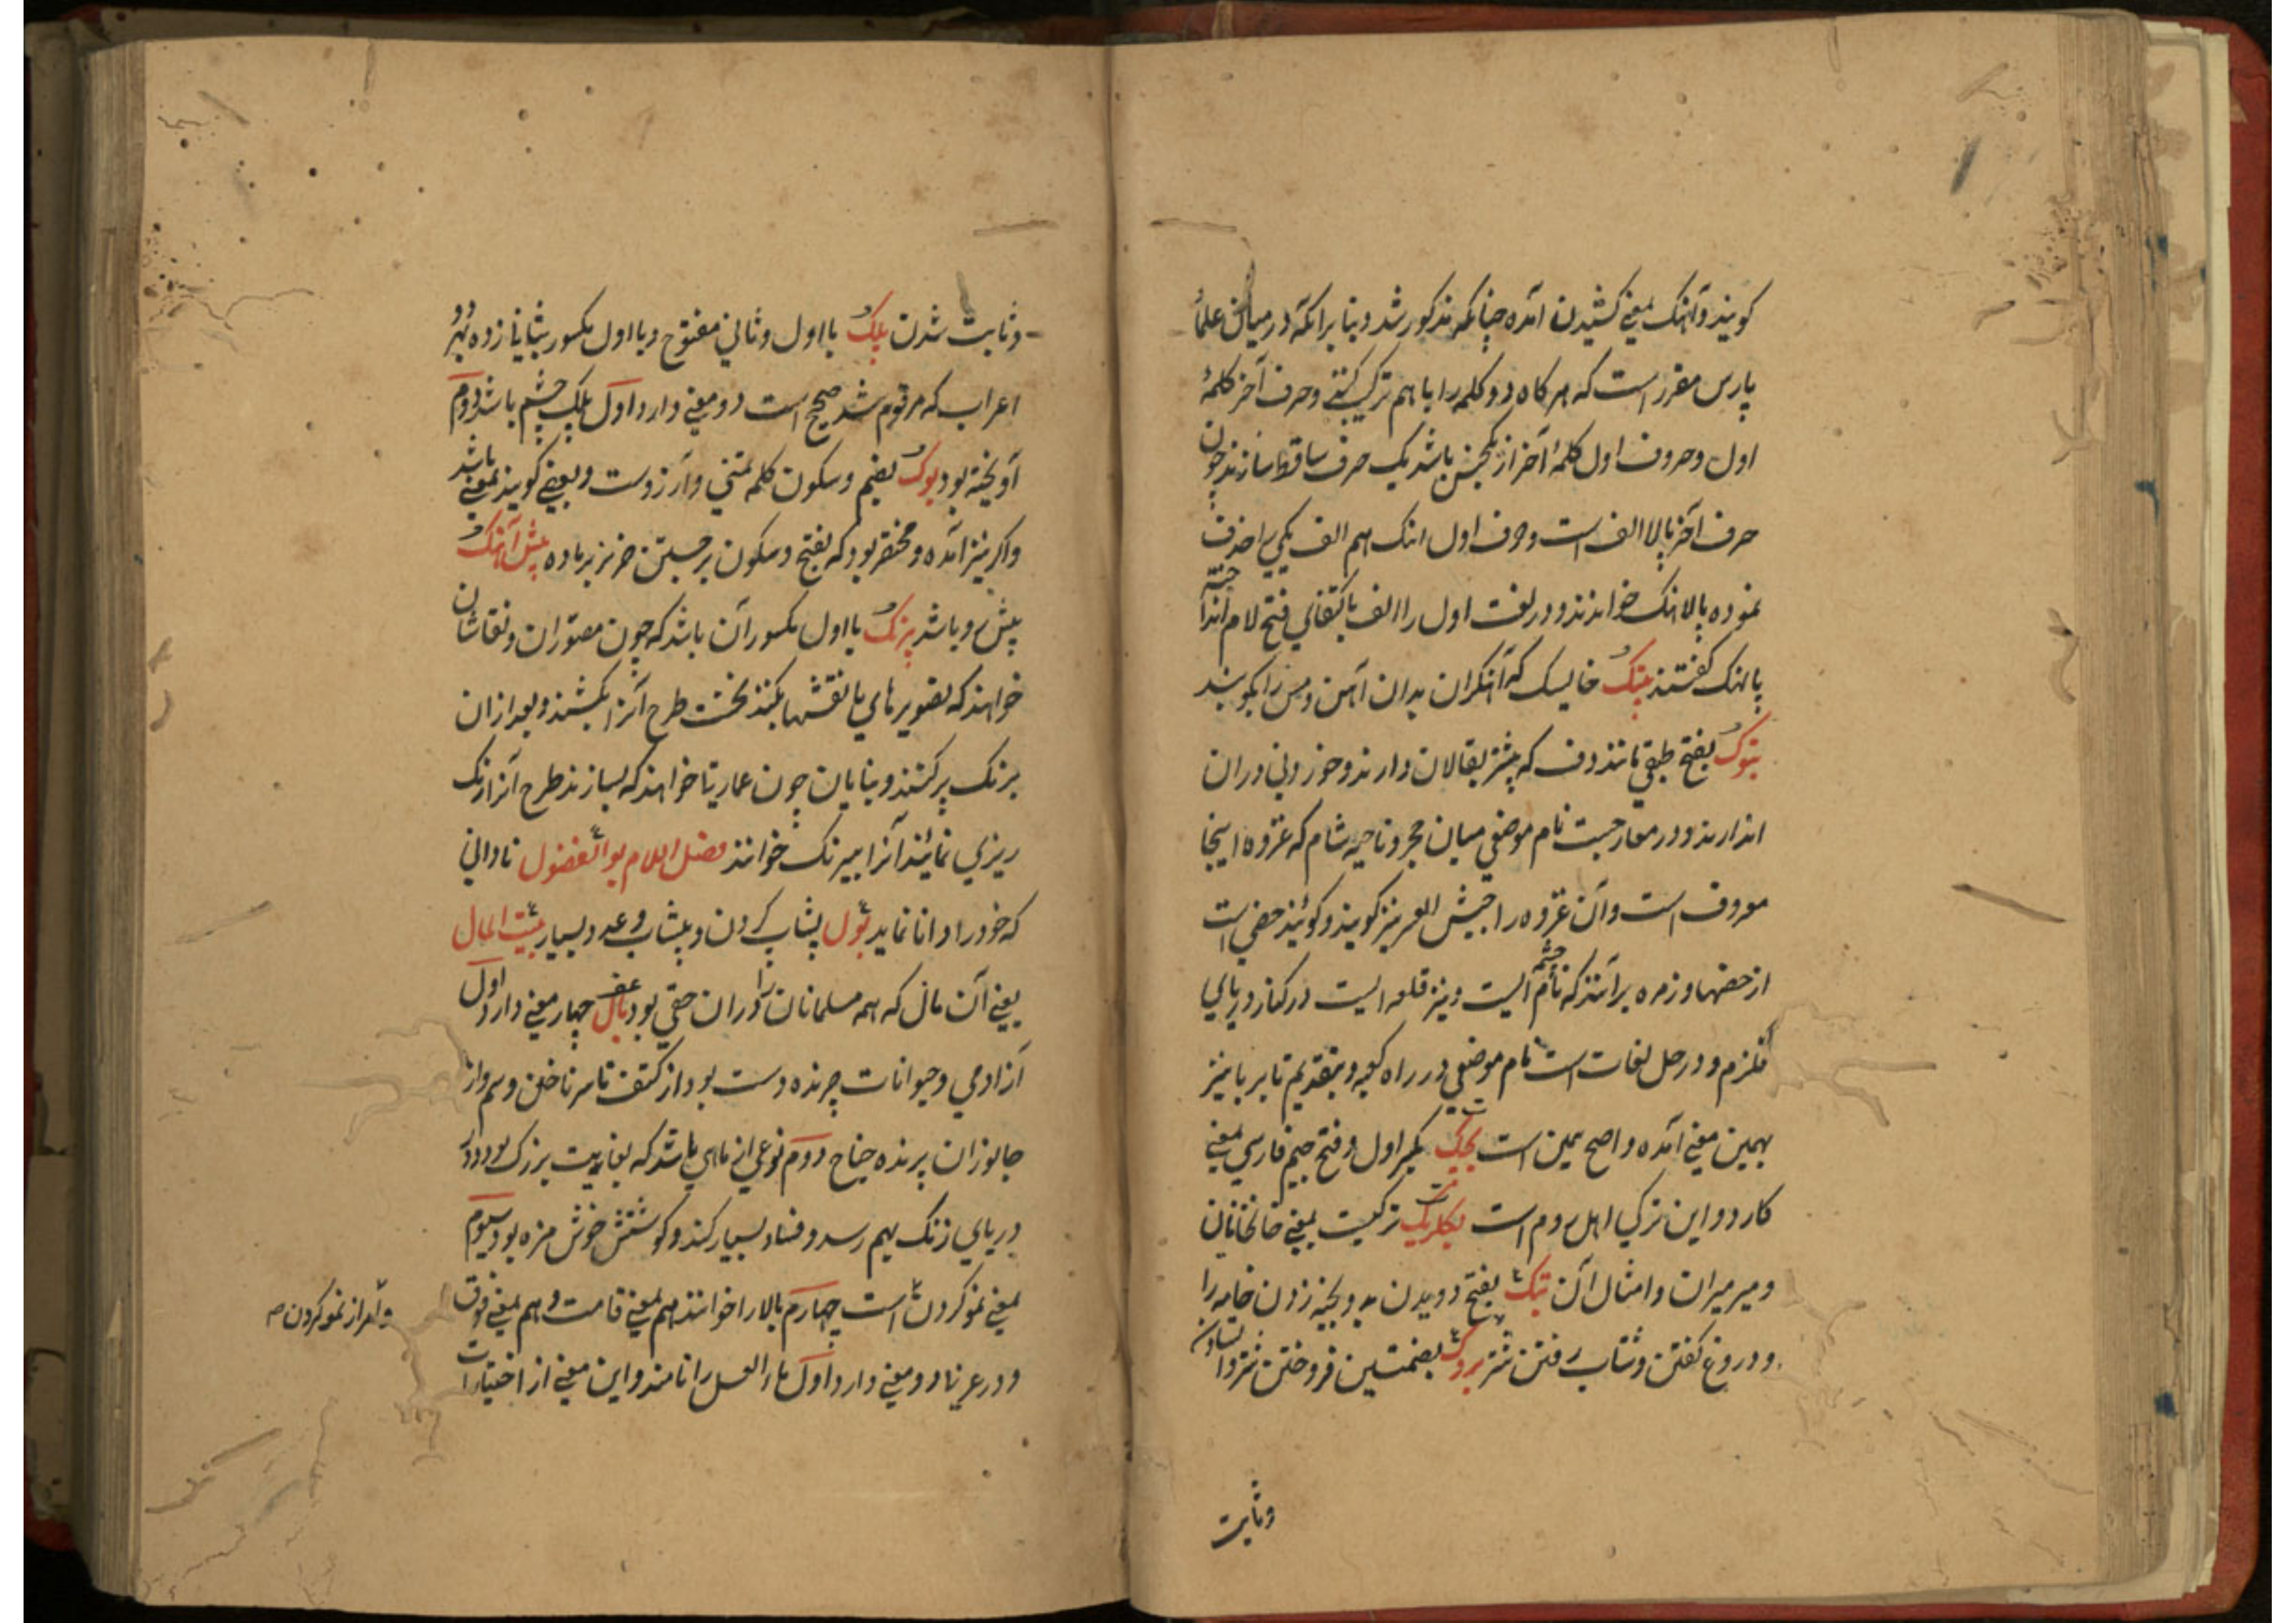 کویند و آهنک بمعنے کشیدن آمده چنانکه مذکور شد و بنا برانکه در میان علماء
پارس مقرر است که هر کاه دو کلمه را با هم ترکیب کنند و حرف آخر کلمهٔ
اول و حروف اول کلمهٔ آخر از یکجنس باشد یک حرف ساقط سازند چون
حرف آخر بالا الف است و حرف اول اهنک هم الف یکی را حذف
نموده پالاهنک خوانند و در لغت اول را الف باکتفای فتح لام انداخته
پالهنک کفتند پتک خایسک که آهنکران بدان آهن و مس را بکوبند
بتوک بفتح طبقی مانند دف که بیشتر بقالان دارند و خوردنی دران
اندازند و در معارجست نام موضعی میان حجر و ناحیه شام که غزوه اینجا
معروف است و آن غزوه را جیش العسر نیز کویند و کویند حصنی است
از حصنها و زمره برآنند که نام چشمه ایست و نیز قلعه ایست در کنار دریای
قلزم و در حل لغات است نام موضعی در راه کعبه و بتقدیم تا بر با نیز
بهمین معنے آمده و اصح همین است بچک بکسر اول و فتح جیم فارسی بمعنے
کارد و این ترکی اهل روم است بکلربک ترکیست بمعنے خانخانان
و میر میران و امثال آن بتک بفتح دویدن به و بخیه زدن جامه را
و دروغ کفتن و شتاب رفتن شتر بروک بضمتین فرو خفتن شتر و ایستادن
وثابت
وثابت شدن پلک با اول و ثانی مفتوح و با اول مکسور بثانی زده بهر دو
اعراب که مرقوم شد صحیح است دو معنے دارد اول پلک چشم باشد دوم
آویخته بود بوک بضم و سکون کلمه تمنی و آرزوست و بعضے کویند بمعنے باشد
و اکر نیز آمده و مختصر بود که بفتح و سکون برجستن خر نر بر ماده پیش آهنک
پیش رو باشد پیرنک با اول مکسور آن باشد که چون مصوران و نقاشان
خواهند که تصویرهای یا نقشها بکنند نخست طرح آنرا بکشند و بعد ازان
برنک پر کنند و بنایان چون عمارتها خواهند که بسازند طرح آنرا رنک
ریزی نمایند آنرا بیرنک خوانند فصل اللام بو الفضول نادانی
که خود را دانا نماید بول پیشاب کردن و پیشاب و عدد بسیار بیت المال
یعنے آن مال که همه مسلمانان را دران حقی بود بال چهار معنے دارد اول
از آدمی و حیوانات چرنده دست بود از کتف تا سر ناخن و سم و از
جانوران پرنده جناح دوم نوعی از ماهی باشد که بغایت بزرک بود و در
دریای زنک بهم رسد و فساد بسیار کند و کوشتش خوش مزه بود سیوم
بمعنے نمو کردن است چهارم بالا را خوانند هم بمعنے قامت و هم بمعنے فوق
و امر از نمو کردن صح
و در عربی دو معنے دارد اول
را نامند و این معنے از اختیارات